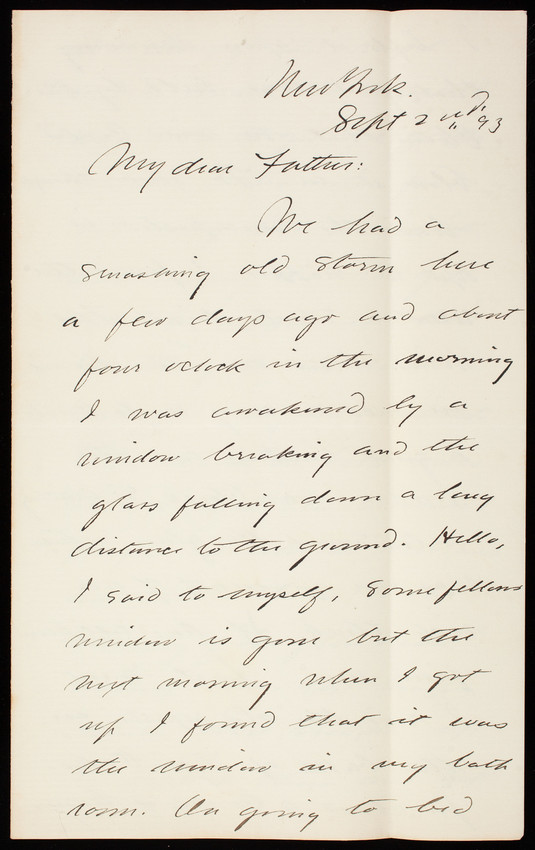 New York.
Sept 2nd, 93
My dear Father:
We had a
smashing old storm here
a few days ago and about
four oclock in the morning
I was awakened by a
window breaking and the
glass falling down a long
distance to the ground. Hello,
I said to myself, some fellows
window is gone but the
next morning when I got
up I found that it was
the window in my bath
room. On going to bed